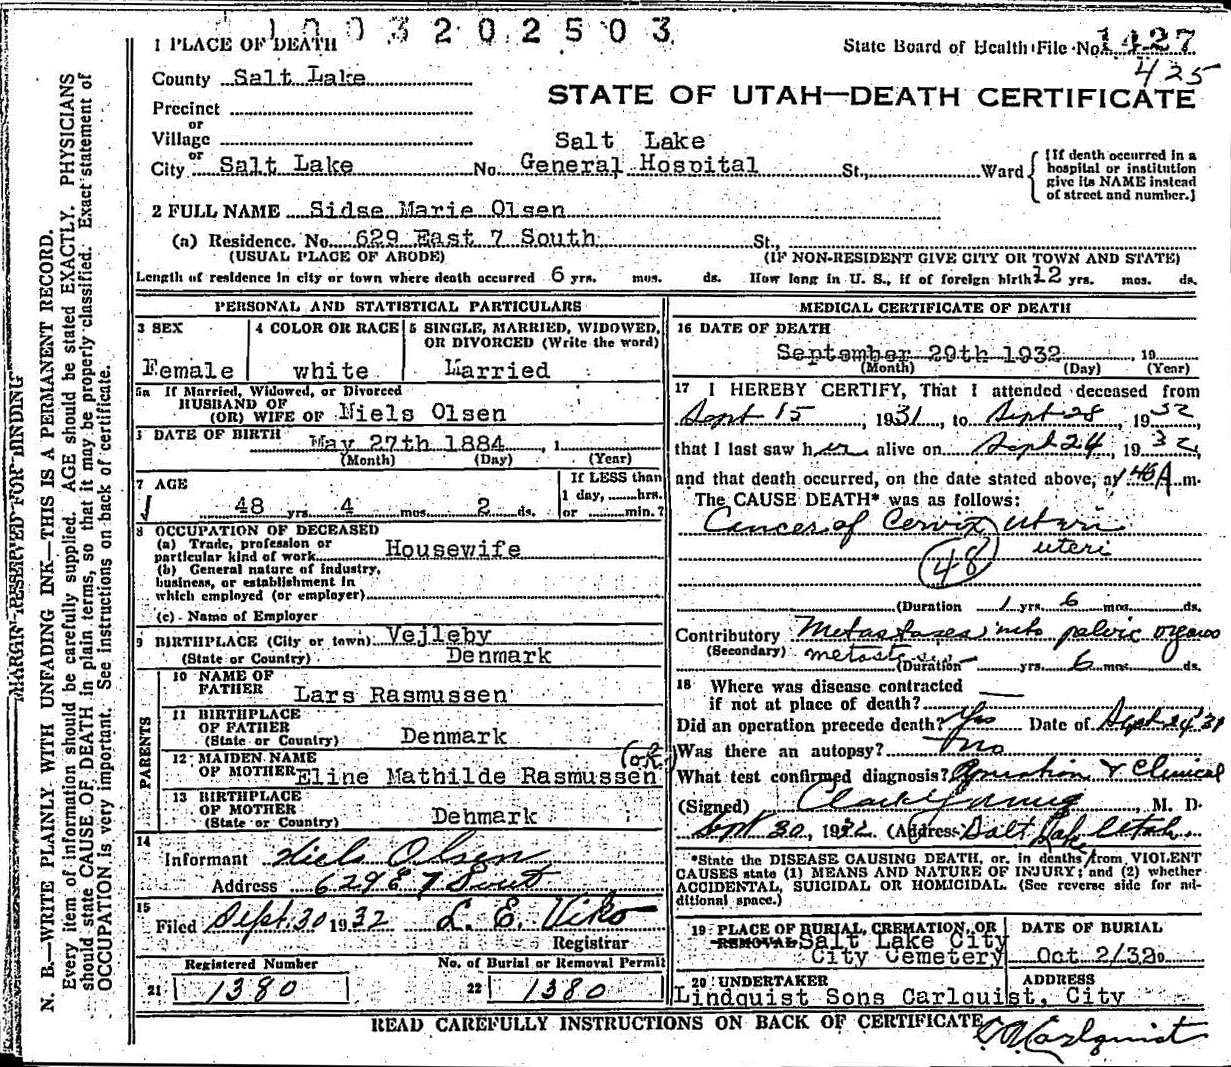 1003202503
State Board of Health File No. 1427
425
STATE OF UTAH—DEATH CERTIFICATE
1 PLACE OF DEATH
County Salt Lake
Precinct
or
Village
or
City Salt Lake No. Salt Lake General Hospital St., Ward
[If death occurred in a hospital or institution give its NAME instead of street and number.]
2 FULL NAME Sidse Marie Olsen
(a) Residence. No. 629 East 7 South St.,
(USUAL PLACE OF ABODE) (IF NON-RESIDENT GIVE CITY OR TOWN AND STATE)
Length of residence in city or town where death occurred 6 yrs. mos. ds. How long in U. S., if of foreign birth 12 yrs. mos. ds.
PERSONAL AND STATISTICAL PARTICULARS
3 SEX
Female
4 COLOR OR RACE
white
5 SINGLE, MARRIED, WIDOWED, OR DIVORCED (Write the word)
Married
5a If Married, Widowed, or Divorced
HUSBAND OF
(OR) WIFE OF Niels Olsen
DATE OF BIRTH May 27th 1884, 1
(Month) (Day) (Year)
7 AGE
48 yrs. 4 mos. 2 ds.
If LESS than
1 day, hrs.
or min.?
8 OCCUPATION OF DECEASED
(a) Trade, profession or
particular kind of work Housewife
(b) General nature of industry,
business, or establishment in
which employed (or employer)
(c) Name of Employer
9 BIRTHPLACE (City or town) Vejleby
(State or Country) Denmark
PARENTS
10 NAME OF
FATHER Lars Rasmussen
11 BIRTHPLACE
OF FATHER
(State or Country) Denmark
12 MAIDEN NAME
OF MOTHER Eline Mathilde Rasmussen (ok)
13 BIRTHPLACE
OF MOTHER
(State or Country) Dehmark
14
Informant Niels Olsen
Address 629 E 7 Sout
15
Filed Sept. 30 1932 L. E. Viko
Registrar
Registered Number
21 1380
No. of Burial or Removal Permit
22 1380
MEDICAL CERTIFICATE OF DEATH
16 DATE OF DEATH
September 29th 1932, 19
(Month) (Day) (Year)
17 I HEREBY CERTIFY, That I attended deceased from
Sept 15, 1931, to Sept 28, 1932,
that I last saw her alive on Sept 24, 1932,
and that death occurred, on the date stated above, at A m.
The CAUSE DEATH* was as follows:
Cancer of Cervix Uteri
uteri
48
(Duration 1 yrs. 6 mos. ds.
Contributory Metastases into pelvic organs
(Secondary) metastasis
(Duration yrs. 6 mos. ds.
18 Where was disease contracted
if not at place of death?
Did an operation precede death? Yes Date of Sept 24 '31
Was there an autopsy? no
What test confirmed diagnosis? Operation & Clinical
(Signed) Clark Young, M. D.
Sept 30, 1932 (Address Salt Lake Utah
*State the DISEASE CAUSING DEATH, or, in deaths from VIOLENT
CAUSES state (1) MEANS AND NATURE OF INJURY; and (2) whether
ACCIDENTAL, SUICIDAL OR HOMICIDAL. (See reverse side for additional space.)
19 PLACE OF BURIAL, CREMATION, OR
REMOVAL Salt Lake City
City Cemetery
DATE OF BURIAL
Oct 2/32
20 UNDERTAKER ADDRESS
Lindquist Sons Carlquist, City
READ CAREFULLY INSTRUCTIONS ON BACK OF CERTIFICATE
Carlquist
MARGIN RESERVED FOR BINDING
N. B.—WRITE PLAINLY WITH UNFADING INK—THIS IS A PERMANENT RECORD.
Every item of information should be carefully supplied. AGE should be stated EXACTLY. PHYSICIANS
should state CAUSE OF DEATH in plain terms, so that it may be properly classified. Exact statement of
OCCUPATION is very important. See instructions on back of certificate.